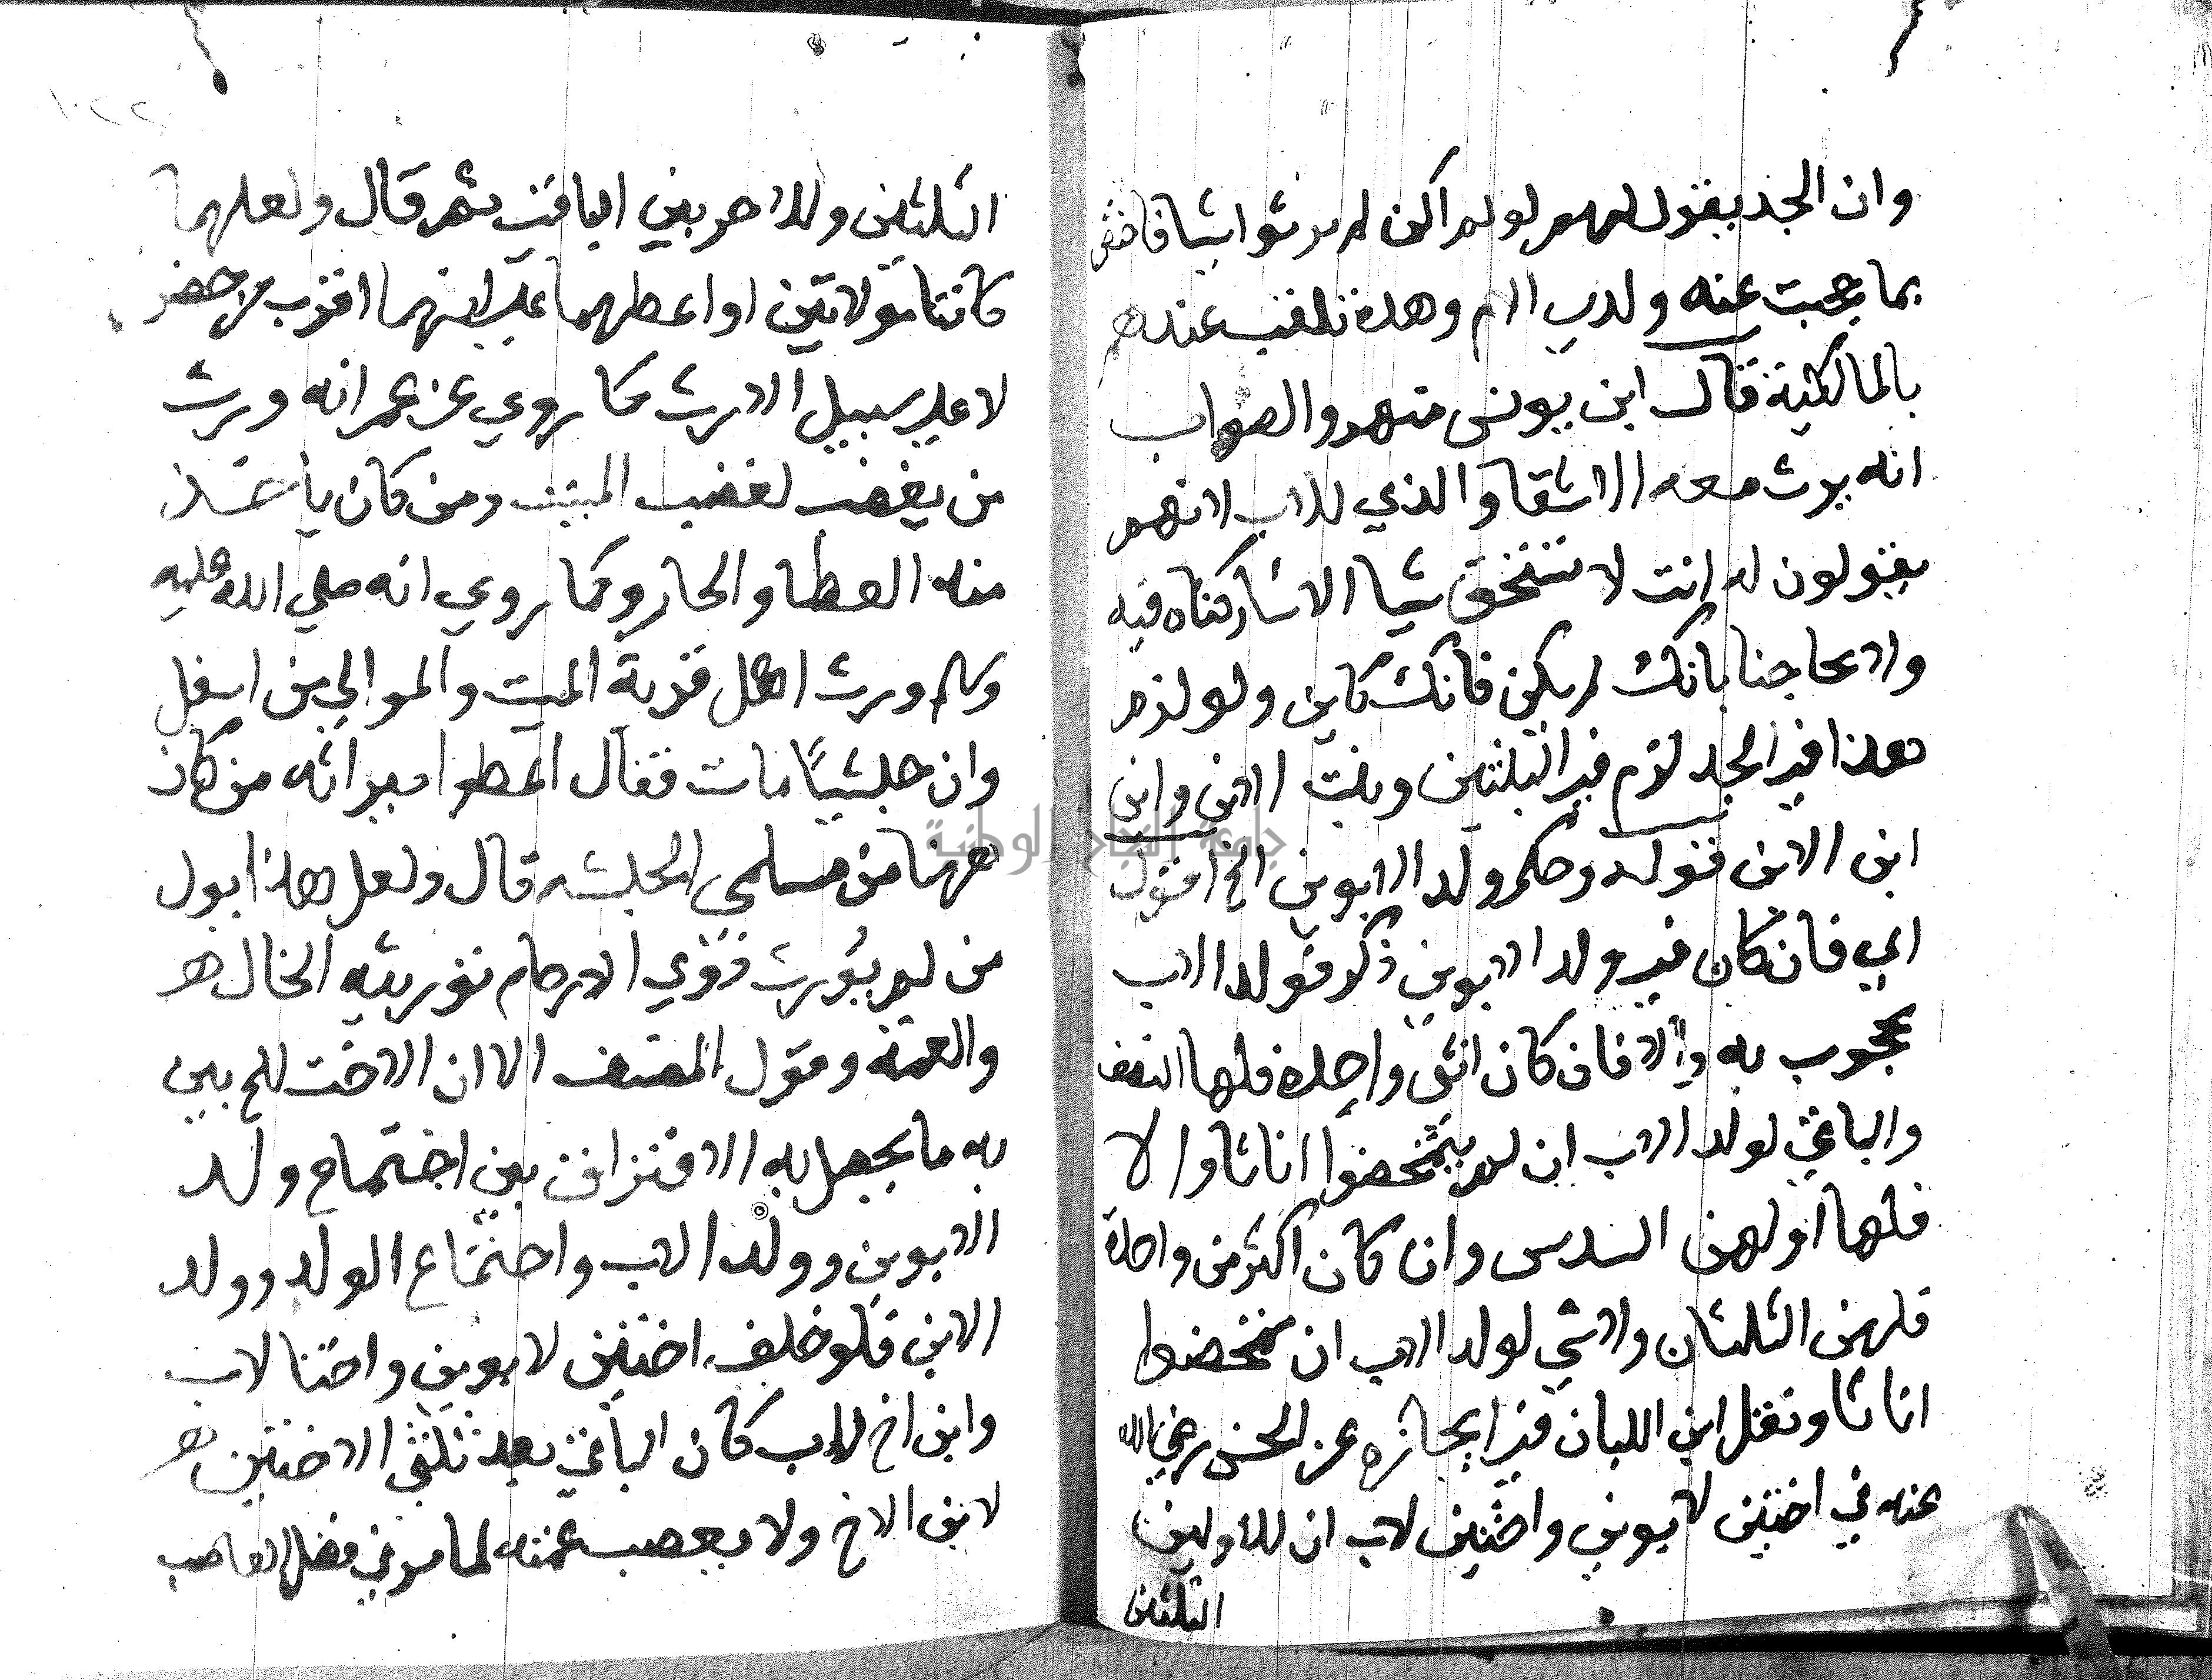 وان الجد يقول لهم لو لم اكن لم يرثوا شيا فاختص
بما حجبت عنه ولدي الام وهذه تلقب عندهم
بالمالكية قال ابن يونس منهم والصواب
انه يرث معه الاشقا والذي للاب لانهم
يقولون له انت لا تستحق شيا الا شاركناه فيه
ولا تحاجنا بانك لم تكن فانك كاين ولو لزم
هذا في الجد لزم في الثلثين وبنت الابن وابن
ابن الابن قوله وحكم ولد الابوين الخ اقول
اي فان كان في ولد الابوين ذكر فولد الاب
محجوب به والا فان كان انثى واحدة فلها النصف
والباقي لولد الاب ان لم يتمحضوا اناثا والا
فلها او لهن السدس وان كان اكثر من واحدة
فلهن الثلثان ولا شي لولد الاب ان تمحضوا
اناثا ونقل ابن اللبان في ايجازه عن الحسن رضي الله
عنه في اختين لابوين واختين لاب ان للاوليين
الثلثين
الثلثين وللاخريين الباقي ثم قال ولعلهما
كانتا مولاتين او اعطاهما على انهما اقرب من حضر
لا على سبيل الارث كما روي عن عمر انه ورث
من يغضب لغضب الميت ومن كان ياخذ
منه العطا والجار وكما روي انه صلى الله عليه
وسلم ورث اهل قرية الميت والموالي من اسفل
وان حبشيًا مات فقال اعطوا ميراثه من كان
ههنا من مسلمي الحبشه قال ولعل هذا ابول
من لم يُورث ذوي الارحام توريثه الخال هـ
والعمة وقول المصنف الا ان الاخت الخ بين
به ما يحصل به الافتراق بين اجتماع ولد
الابوين وولد الاب واجتماع الولد وولد
الابن فلو خلف اختين لابوين واختا لاب
وابن اخ لاب كان الباقي بعد ثلثي الاختين هـ
لابن الاخ ولا يعصب عمته لما مر في فصل العاصب
جامعة النجاح الوطنية